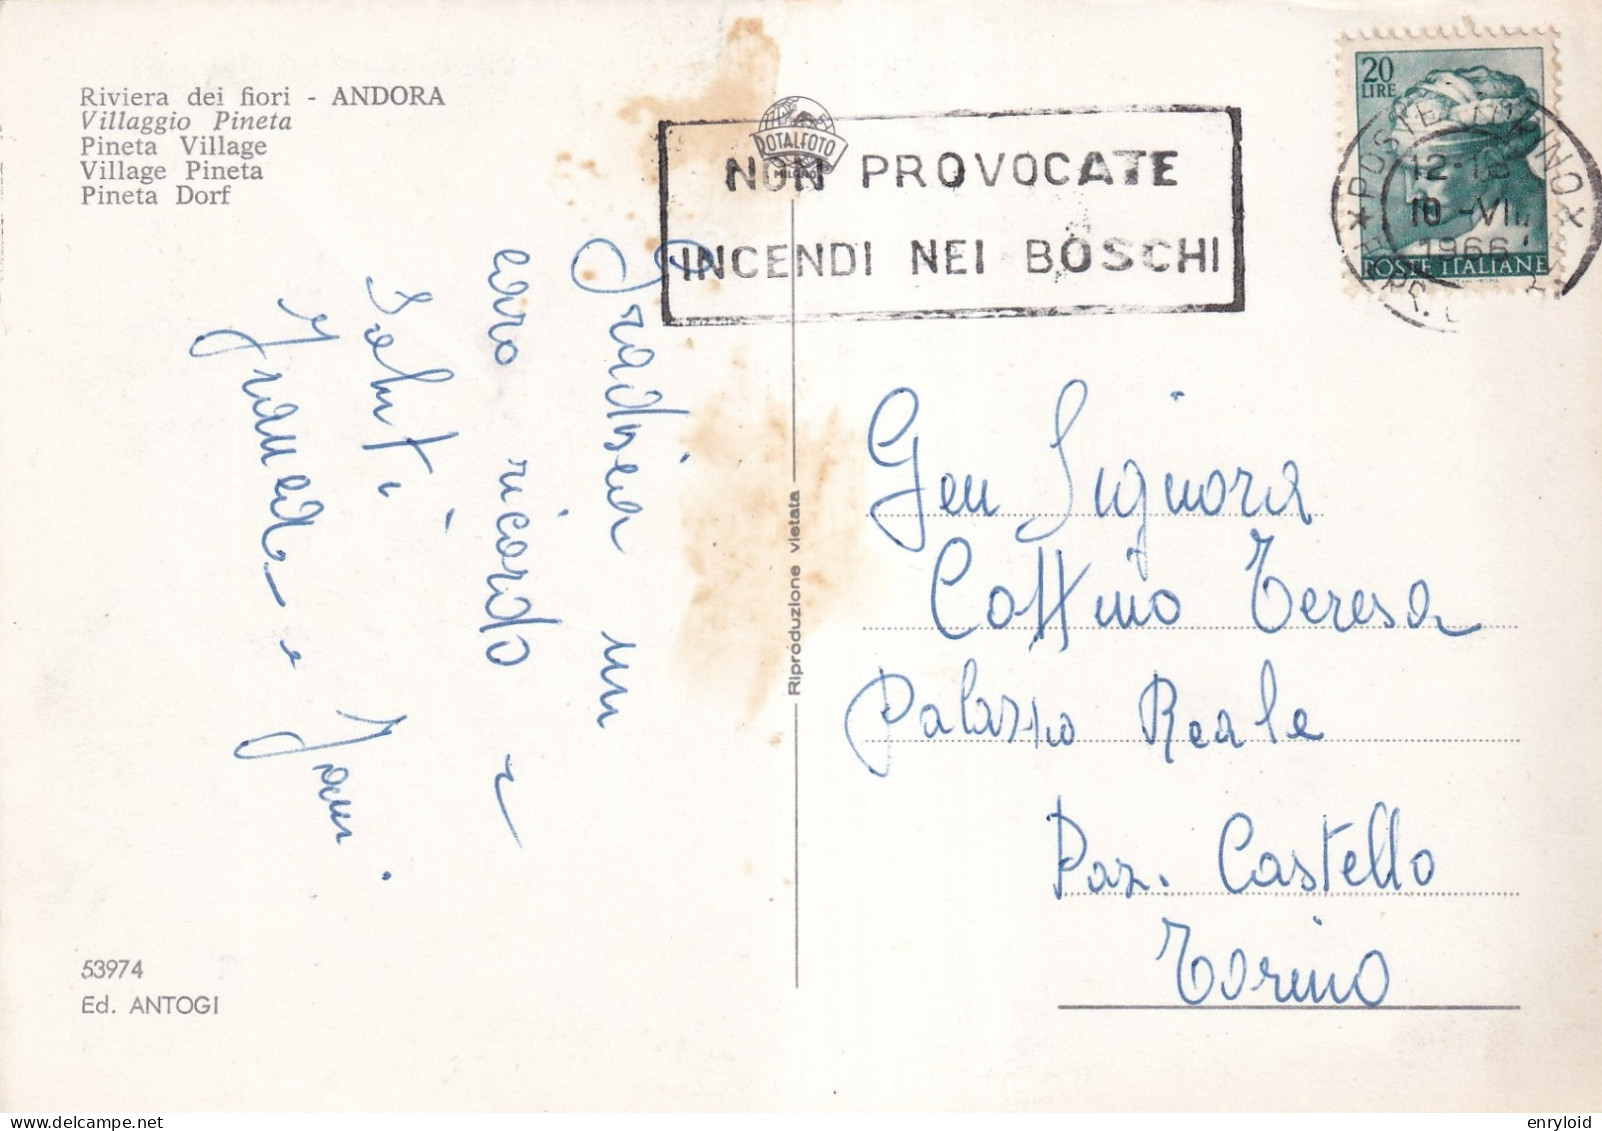 Riviera dei fiori - ANDORA
Villaggio Pineta
Pineta Village
Village Pineta
Pineta Dorf
ROTALFOTO
MILANO
NON PROVOCATE
INCENDI NEI BOSCHI
20
LIRE
POSTE ITALIANE
POSTE TORINO
10 -VIII
1966
Gradisca un
caro ricordo e
saluti
Franca e
Riproduzione vietata
Gen Signora
Cottino Teresa
Palazzo Reale
Paz. Castello
Torino
53974
Ed. ANTOGI
enryloid
delcampe.net